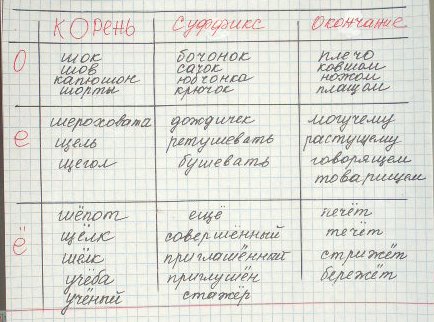 Корень Суффикс Окончание
О шок бочонок плечо
шов сачок ковшом
капюшон юбчонка ножом
шорты крючок плащом
е шероховата дождичек могучему
щель ретушевать растущему
щегол бушевать говорящем
товарищем
ё шёпот ещё печёт
щёлк совершённый течёт
шёлк приглашённый стрижёт
учёба приглушён бережёт
учёный стажёр